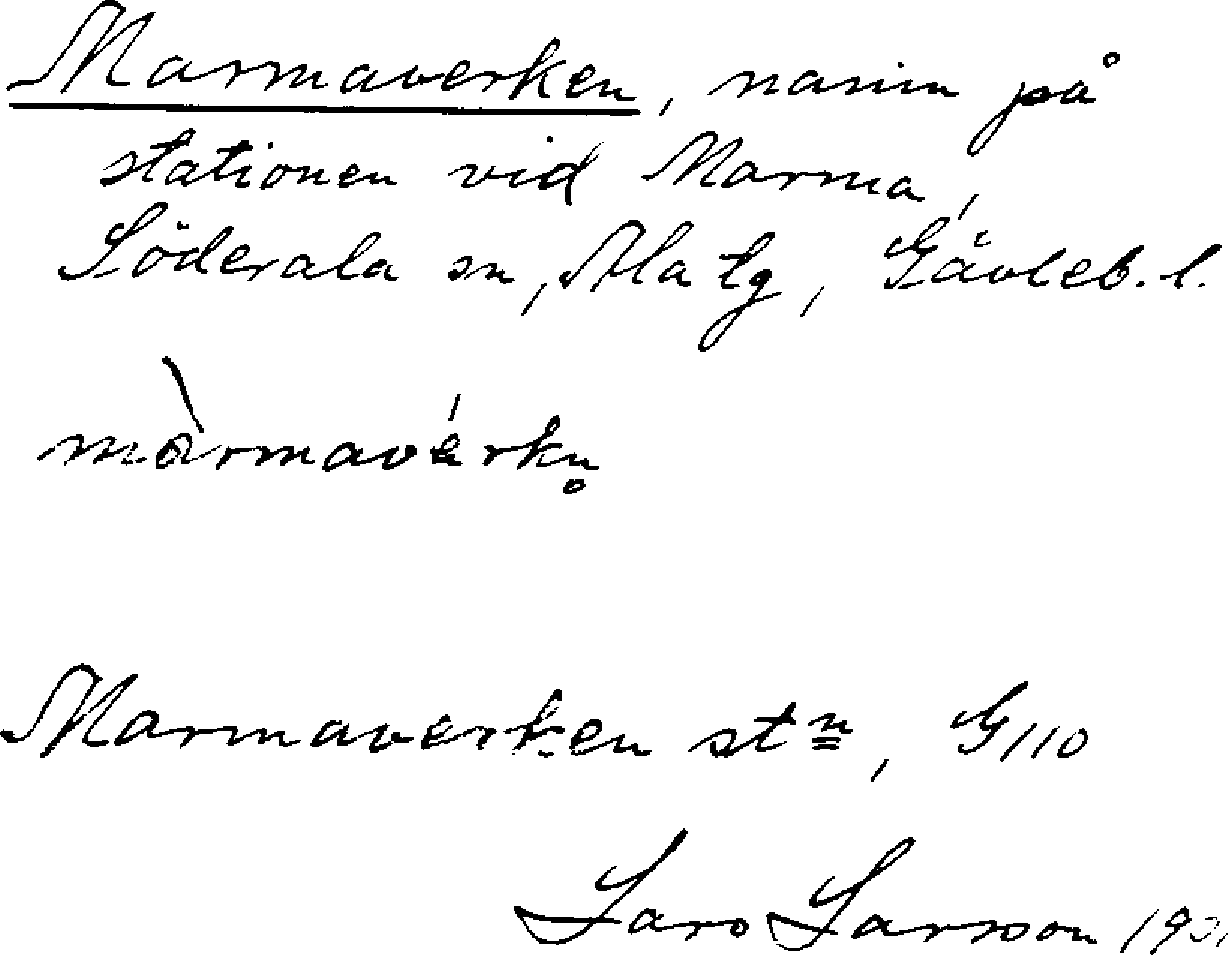 Marmaverken, namn på
stationen vid Marma,
Söderala sn, Ala tg, Gävleb. l.
màrmavárkn̥
Marmaverken stn, G110
Lars Larsson